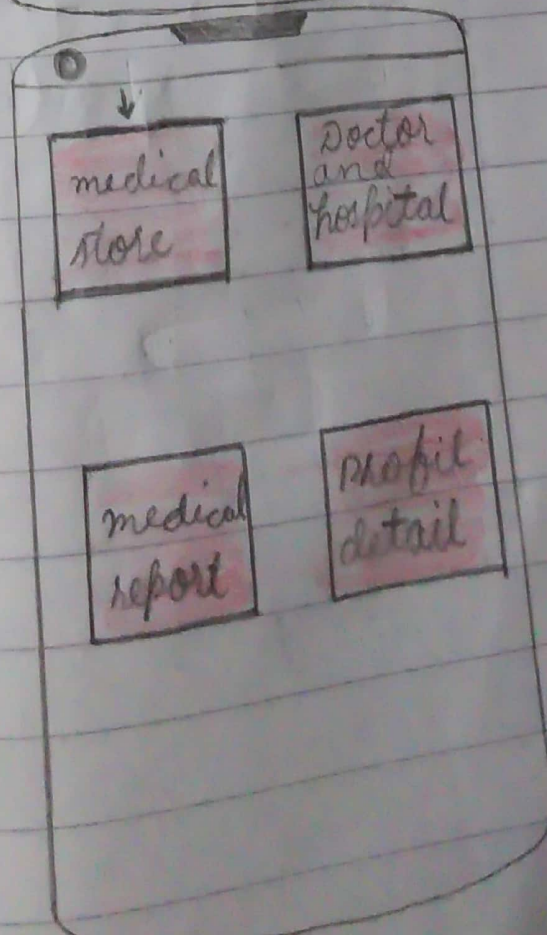 medical
store
Doctor
and
hospital
medical
report
profil
detail